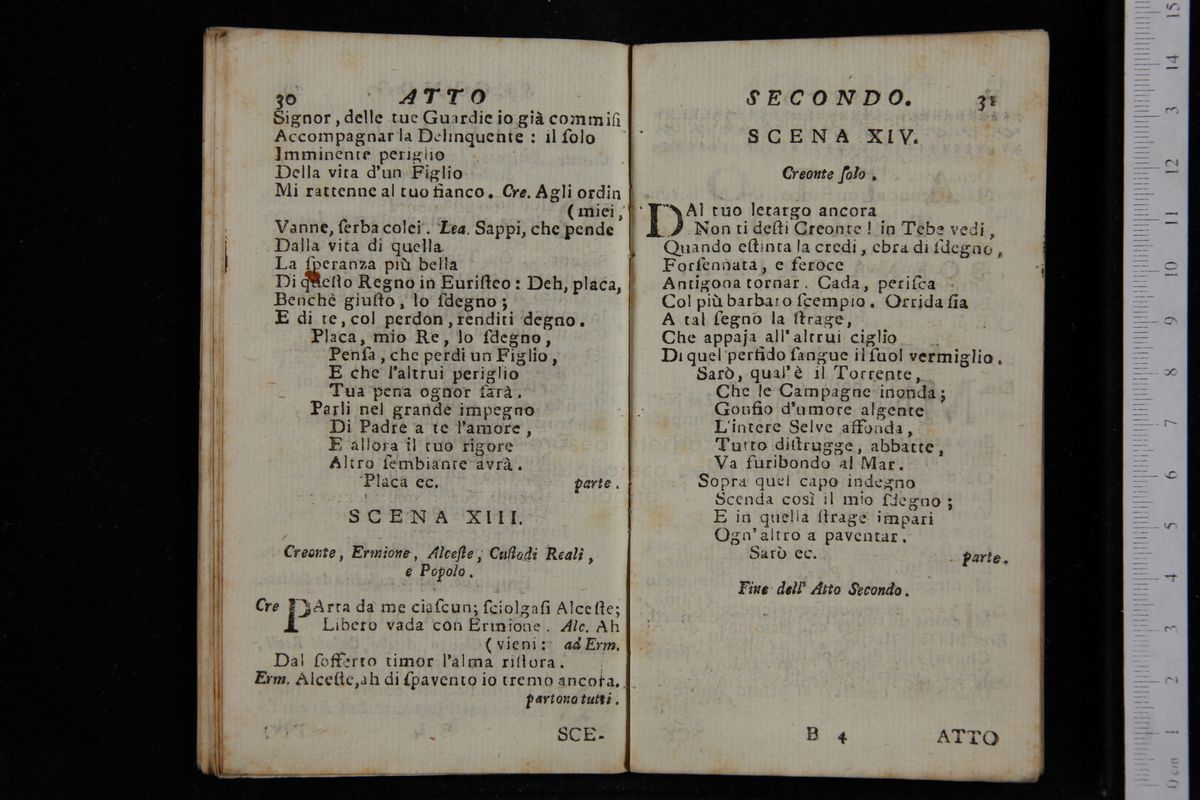 30 ATTO
Signor, delle tue Guardie io già commiſi
Accompagnar la Delinquente : il ſolo
Imminente periglio
Della vita d'un Figlio
Mi rattenne al tuo fianco. Cre. Agli ordin
(miei,
Vanne, ſerba colei. Lea. Sappi, che pende
Dalla vita di quella
La ſperanza più bella
Di queſto Regno in Euriſteo : Deh, placa,
Benchè giuſto, lo ſdegno ;
E di te, col perdon, renditi degno.
Placa, mio Re, lo ſdegno,
Penſa, che perdi un Figlio,
E che l'altrui periglio
Tua pena ognor ſarà.
Parli nel grande impegno
Di Padre a te l'amore,
E allora il tuo rigore
Altro ſembiante avrà.
Placa ec. parte.
SCENA XIII.
Creonte, Ermione, Alceſte, Cuſtodi Reali,
e Popolo.
Cre PArta da me ciaſcun; ſciolgaſi Alceſte;
Libero vada con Ermione. Alc. Ah
(vieni : ad Erm.
Dal ſofferto timor l'alma riſtora.
Erm. Alceſte, ah di ſpavento io tremo ancora.
partono tutti.
SCE-
SECONDO. 31
SCENA XIV.
Creonte ſolo.
DAl tuo letargo ancora
Non ti deſti Creonte ! in Tebe vedi,
Quando eſtinta la credi, ebra di ſdegno,
Forſennata, e feroce
Antigona tornar. Cada, periſca
Col più barbaro ſcempio. Orrida ſia
A tal ſegno la ſtrage,
Che appaja all'altrui ciglio
Di quel perfido ſangue il ſuol vermiglio.
Sarò, qual'è il Torrente,
Che le Campagne inonda ;
Gonfio d'umore algente
L'intere Selve affonda,
Tutto diſtrugge, abbatte,
Va furibondo al Mar.
Sopra quel capo indegno
Scenda così il mio ſdegno ;
E in quella ſtrage impari
Ogn'altro a paventar.
Sarò ec. parte.
Fine dell' Atto Secondo.
B 4 ATTO
0 cm 1 2 3 4 5 6 7 8 9 10 11 12 13 14 15